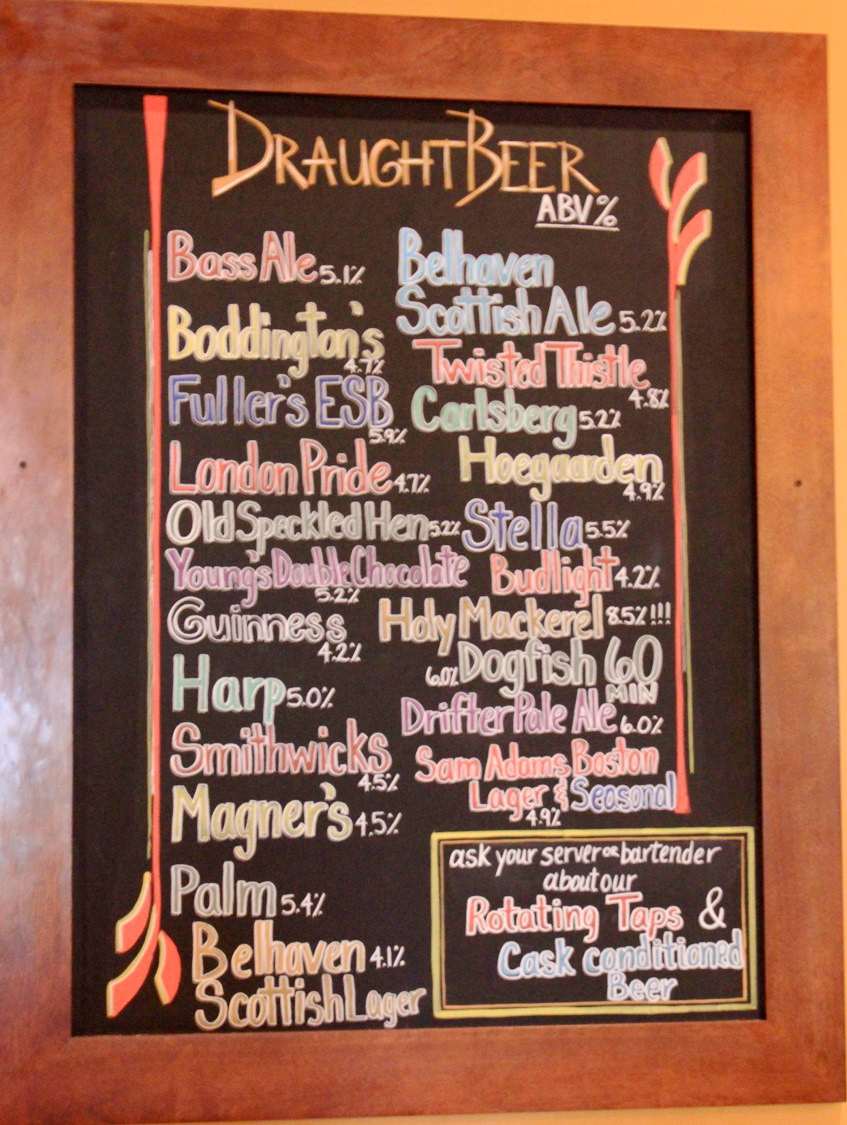 DRAUGHT BEER
ABV%
Bass Ale 5.1%
Boddington's
4.7%
Fuller's ESB
5.9%
London Pride 4.7%
Old Speckled Hen 5.2%
Young's Double Chocolate
5.2%
Guinness
4.2%
Harp 5.0%
Smithwicks
4.5%
Magner's 4.5%
Palm 5.4%
Belhaven 4.1%
Scottish Lager
Belhaven
Scottish Ale 5.2%
Twisted Thistle
4.8%
Carlsberg 5.2%
Hoegaarden
4.9%
Stella 5.5%
Budlight 4.2%
Holy Mackerel 8.5% !!!
6.0% Dogfish 60
MIN
Drifter Pale Ale 6.0%
Sam Adams Boston
Lager & Seasonal
4.9%
ask your server or bartender
about our
Rotating Taps &
Cask conditioned
Beer